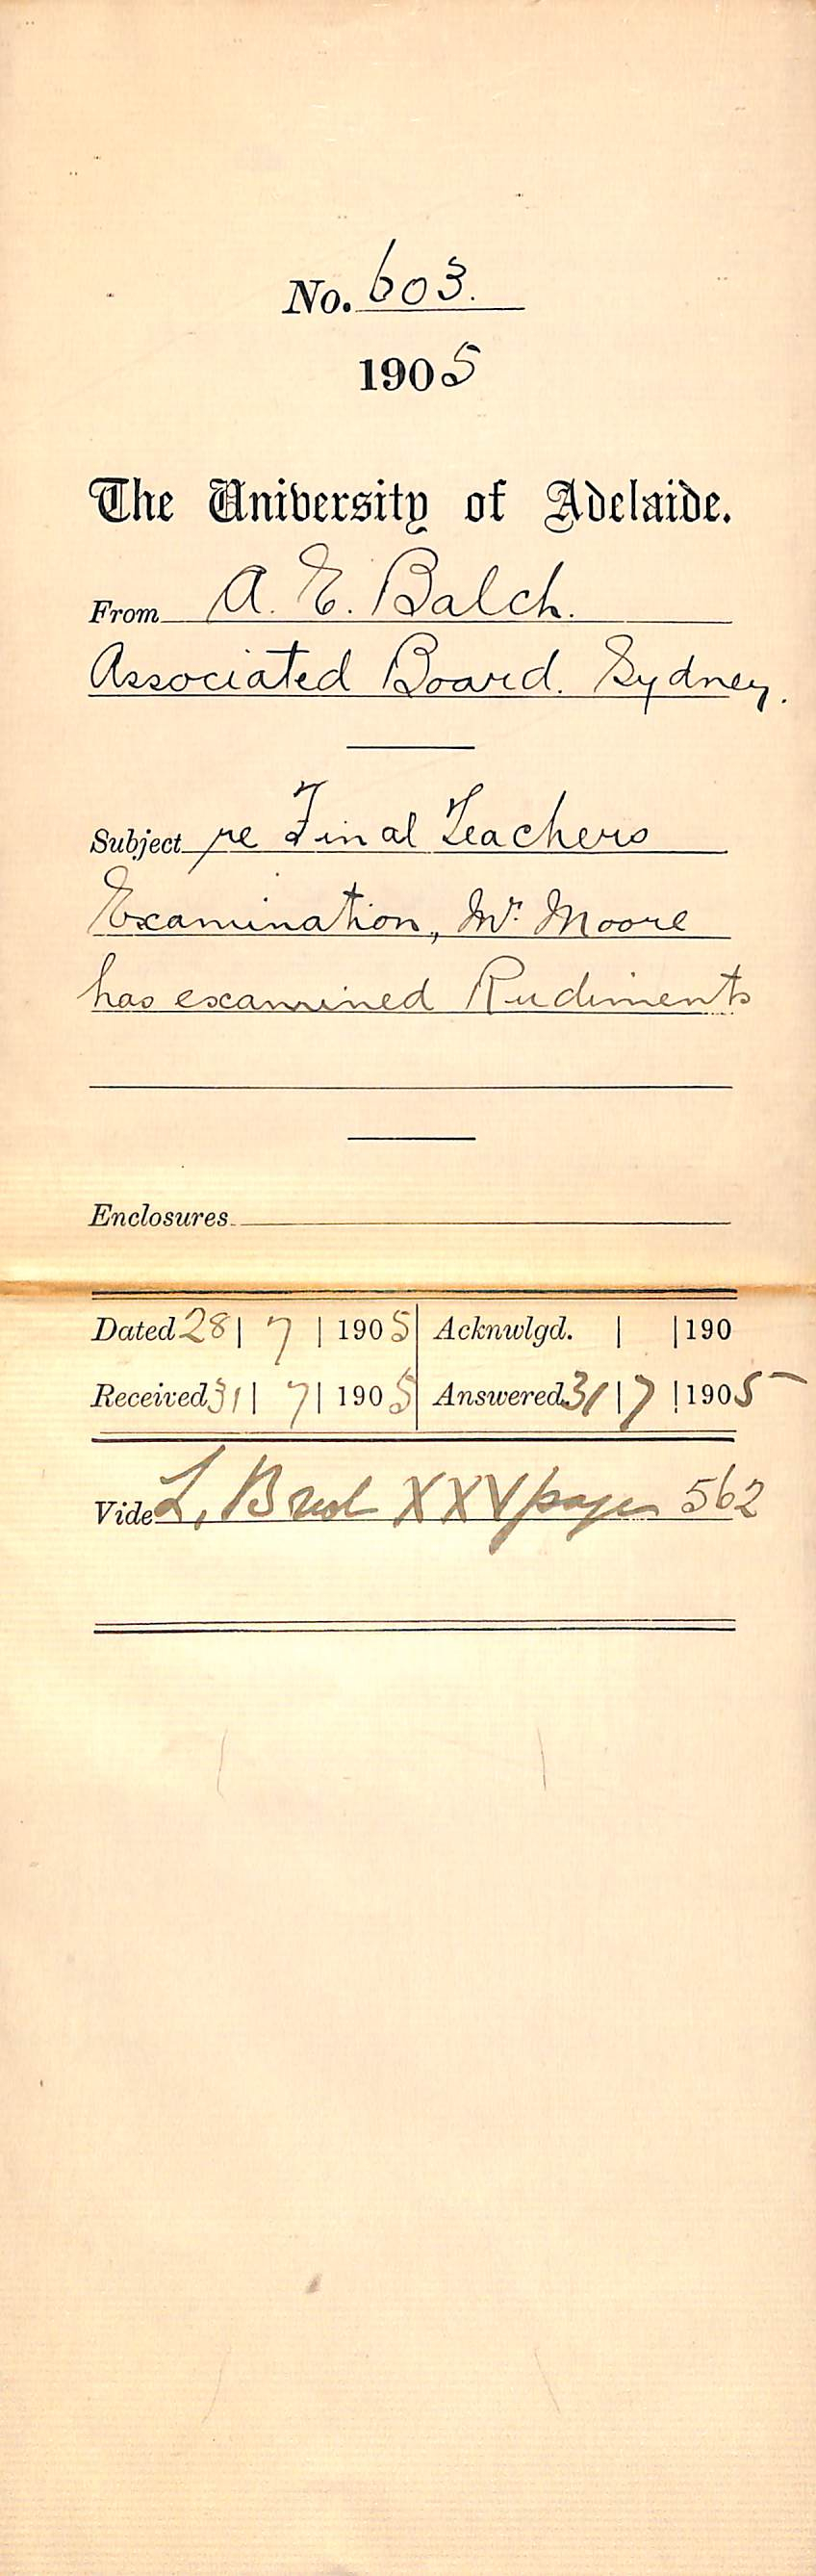 No. 603.
1905
The University of Adelaide.
From A. E. Balch.
Associated Board. Sydney.
Subject re Final Teachers
Examination, Mr. Moore
has examined Rudiments
Enclosures
Dated 28 | 7 | 1905 Acknwlgd. | | 190
Received 31 | 7 | 1905 Answered 31 | 7 | 1905
Vide L, Book XXV page 562